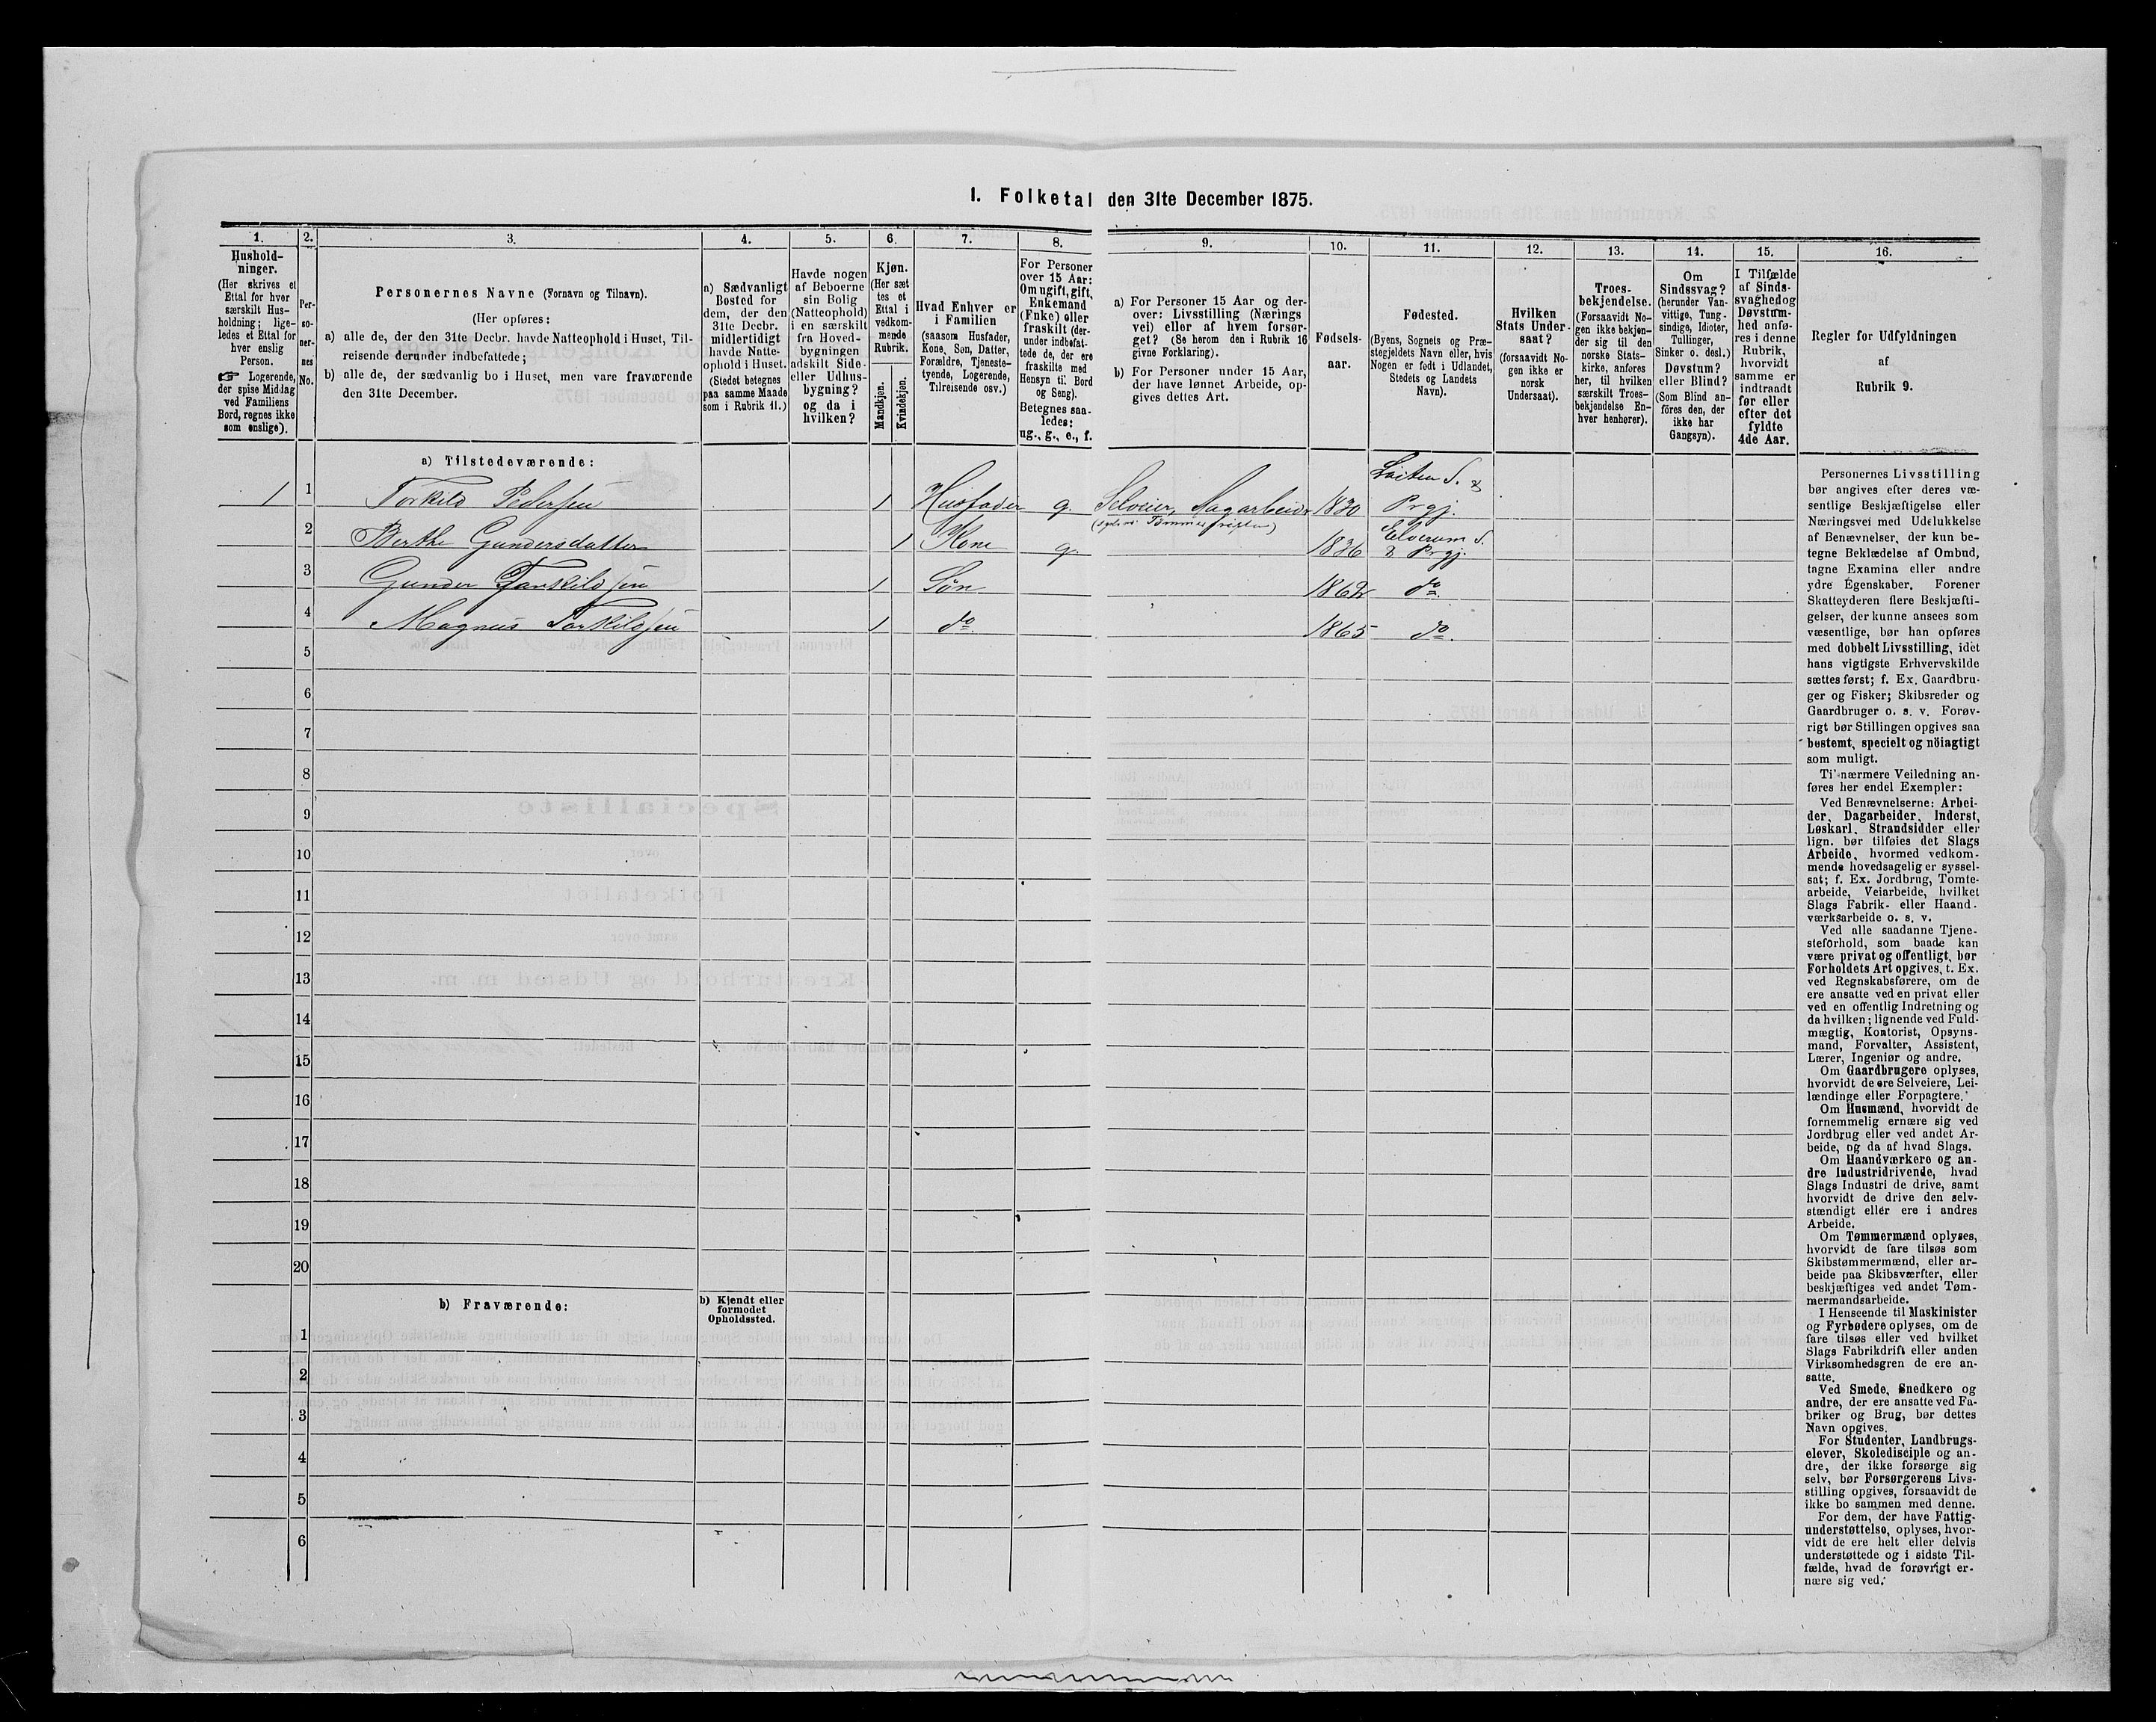 1. Folketal den 31te December 1875.
1.
Hushold-
ninger.
(Her skrives et
Ettal for hver
særskilt Hus-
holdning; lige-
ledes et Ettal for
hver enslig
Person.
☞ Logerende,
der spise Middag
ved Familiens
Bord, regnes ikke
som enslige).
2.
Per-
so-
ner-
nes
No.
3.
Personernes Navne (Fornavn og Tilnavn).
(Her opføres:
a) alle de, der den 31te Decbr. havde Natteophold i Huset, Til-
reisende derunder indbefattede;
b) alle de, der sædvanlig bo i Huset, men vare fraværende
den 31te December.
4.
a) Sædvanligt
Bosted for
dem, der den
31te Decbr.
midlertidigt
havde Natte-
ophold i Huset.
(Stedet betegnes
paa samme Maade
som i Rubrik 11.)
5.
Havde nogen
af Beboerne
sin Bolig
(Natteophold)
i en særskilt
fra Hoved-
bygningen
adskilt Side-
eller Udhus-
bygning?
og da i
hvilken?
6.
Kjøn.
(Her sæt
tes et
Ettal i
vedkom-
mende
Rubrik.
Mandkjøn.
Kvindekjøn.
7.
Hvad Enhver er
i Familien
(saasom Husfader,
Kone, Søn, Datter,
Forældre, Tjeneste-
tyende, Logerende,
Tilreisende osv.)
8.
For Personer
over 15 Aar:
Om ugift, gift,
Enkemand
(Enke) eller
fraskilt (der-
under indbefat-
tede de, der ere
fraskilte med
Hensyn til Bord
og Seng).
Betegnes saa-
ledes:
ug., g., e., f.
9.
a) For Personer 15 Aar og der-
over: Livsstilling (Nærings
vei) eller af hvem forsør-
get? (Se herom den i Rubrik 16
givne Forklaring).
b) For Personer under 15 Aar,
der have lønnet Arbeide, op-
gives dettes Art.
10.
Fødsels-
aar.
11.
Fødested.
(Byens, Sognets og Præ-
stegjeldets Navn eller, hvis
Nogen er født i Udlandet,
Stedets og Landets
Navn).
12.
Hvilken
Stats Under-
saat?
(forsaavidt No-
gen ikke er
norsk
Undersaat).
13.
Troes-
bekjendelse.
(Forsaavidt No-
gen ikke bekjen-
der sig til den
norske Stats-
kirke, anføres
her, til hvilken
særskilt Troes-
bekjendelse En-
hver henhører).
14.
Om
Sindssvag?
(herunder Van-
vittige, Tung-
sindige, Idioter,
Tullinger,
Sinker o. desl.)
Døvstum?
eller Blind?
(Som Blind an-
føres den, der
ikke har
Gangsyn).
15.
I Tilfælde
af Sinds-
svaghed og
Døvstum-
hed anfø-
res i denne
Rubrik,
hvorvidt
samme er
indtraadt
før eller
efter det
fyldte
4de Aar.
16.
Regler for Udfyldningen
af
Rubrik 9.
a) Tilstedeværende:
1 1 Torkild Pedersen 1 Husfader g. Selveier, Dagarbeider 1830 Løiten S. & Prgj.
2 Berthe Gundersdatter 1 Kone g. 1836 Elverum S. & Prgj.
3 Gunder Torkildsen 1 Søn 1862 do.
4 Magnus Torkildsen 1 do. 1865 do.
5
6
7
8
9
10
11
12
13
14
15
16
17
18
19
20
b) Fraværende:
b) Kjendt eller
formodet
Opholdssted.
1
2
3
4
5
6
Personernes Livsstilling
bør angives efter deres væ-
sentlige Beskjæftigelse eller
Næringsvei med Udelukkelse
af Benævnelser, der kun be-
tegne Beklædelse af Ombud,
tagne Examina eller andre
ydre Egenskaber. Forener
Skatteyderen flere Beskjæfti-
gelser, der kunne ansees som
væsentlige, bør han opføres
med dobbelt Livsstilling, idet
hans vigtigste Erhvervskilde
sættes først; f. Ex. Gaardbru-
ger og Fisker; Skibsreder og
Gaardbruger o. s. v. Forøv-
rigt bør Stillingen opgives saa
bestemt, specielt og nöiagtigt
som muligt.
Til nærmere Veiledning an-
føres her endel Exempler:
Ved Benævnelserne: Arbei-
der, Dagarbeider, Inderst,
Løskarl, Strandsidder eller
lign. bør tilføies det Slags
Arbeide, hvormed vedkom-
mende hovedsagelig er syssel-
sat; f. Ex. Jordbrug, Tomte-
arbeide, Veiarbeide, hvilket
Slags Fabrik- eller Haand-
værksarbeide o. s. v.
Ved alle saadanne Tjene-
steforhold, som baade kan
være privat og offentligt, bør
Forholdets Art opgives, t. Ex.
ved Regnskabsførere, om de
ere ansatte ved en privat eller
ved en offentlig Indretning og
da hvilken; lignende ved Fuld-
mægtig, Kontorist, Opsyns-
mand, Forvalter, Assistent,
Lærer, Ingeniør og andre.
Om Gaardbrugere oplyses,
hvorvidt de ere Selveiere, Lei-
lændinge eller Forpagtere.
Om Husmænd, hvorvidt de
fornemmelig ernære sig ved
Jordbrug eller ved andet Ar-
beide, og da af hvad Slags.
Om Haandværkere og an-
dre Industridrivende, hvad
Slags Industri de drive, samt
hvorvidt de drive den selv-
stændigt eller ere i andres
Arbeide.
Om Tømmermænd oplyses,
hvorvidt de fare tilsøs som
Skibstømmermænd, eller ar-
beide paa Skibsværfter, eller
beskjæftiges ved andet Tøm-
mermandsarbeide.
I Henseende til Maskinister
og Fyrbødere oplyses, om de
fare tilsøs eller ved hvilket
Slags Fabrikdrift eller anden
Virksomhedsgren de ere an-
satte.
Ved Smede, Snedkere og
andre, der ere ansatte ved Fa-
briker og Brug, bør dettes
Navn opgives.
For Studenter, Landbrugs-
elever, Skoledisciple og an-
dre, der ikke forsørge sig
selv, bør Forsørgerens Livs-
stilling opgives, forsaavidt de
ikke bo sammen med denne.
For dem, der have Fattig-
understøttelse, oplyses, hvor-
vidt de ere helt eller delvis
understøttede og i sidste Til-
fælde, hvad de forøvrigt er-
nære sig ved.